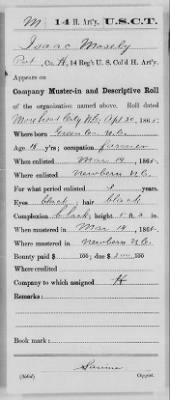 M | 14 H. Art'y. | U.S.C.T.
Isaac Mosely
Pvt., Co. H, 14 Reg't U. S. Col'd H. Art'y.
Appears on
Company Muster-in and Descriptive Roll
of the organization named above. Roll dated
Morehead City N.C. Apr 30, 1865.
Where born Green Co. N.C.
Age 18 y'rs; occupation farmer
When enlisted Mar 14, 1865.
Where enlisted Newbern N.C.
For what period enlisted years.
Eyes black; hair black
Complexion black; height 5 ft. in.
When mustered in Mar 14, 1865.
Where mustered in Newbern N.C.
Bounty paid $ 100; due $ 100
Where credited
Company to which assigned H
Remarks:
Book mark:
(356d) Copyist.